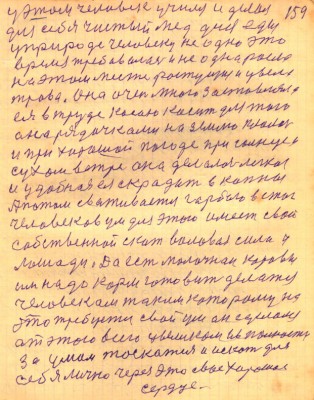 у этом человек учился и делал 159
для себя чистый мед для еды
у природе человеку не одно это
время требовалась и не одна росла
на этом месте растущая и цвела
трава. Она очень много заставлял
ея в труде косою косит для того
она рядочками на землю
и при хорошей погоде при солнце и
сухом ветре она делалася легкою
и удобная ея складать в копны
А потом сватывается гарбою в стог
человеков ум для этого имеет свой
собственной скот воловая сила и
лошади, Да ест молочная корова
им надо корм готовит делается
человекам таким которому на
это требуется свой ум он сделал
от этого всего целиком и полностью
за умом тоскатся и искат для
себя лично через это свое хорошое
сердце.